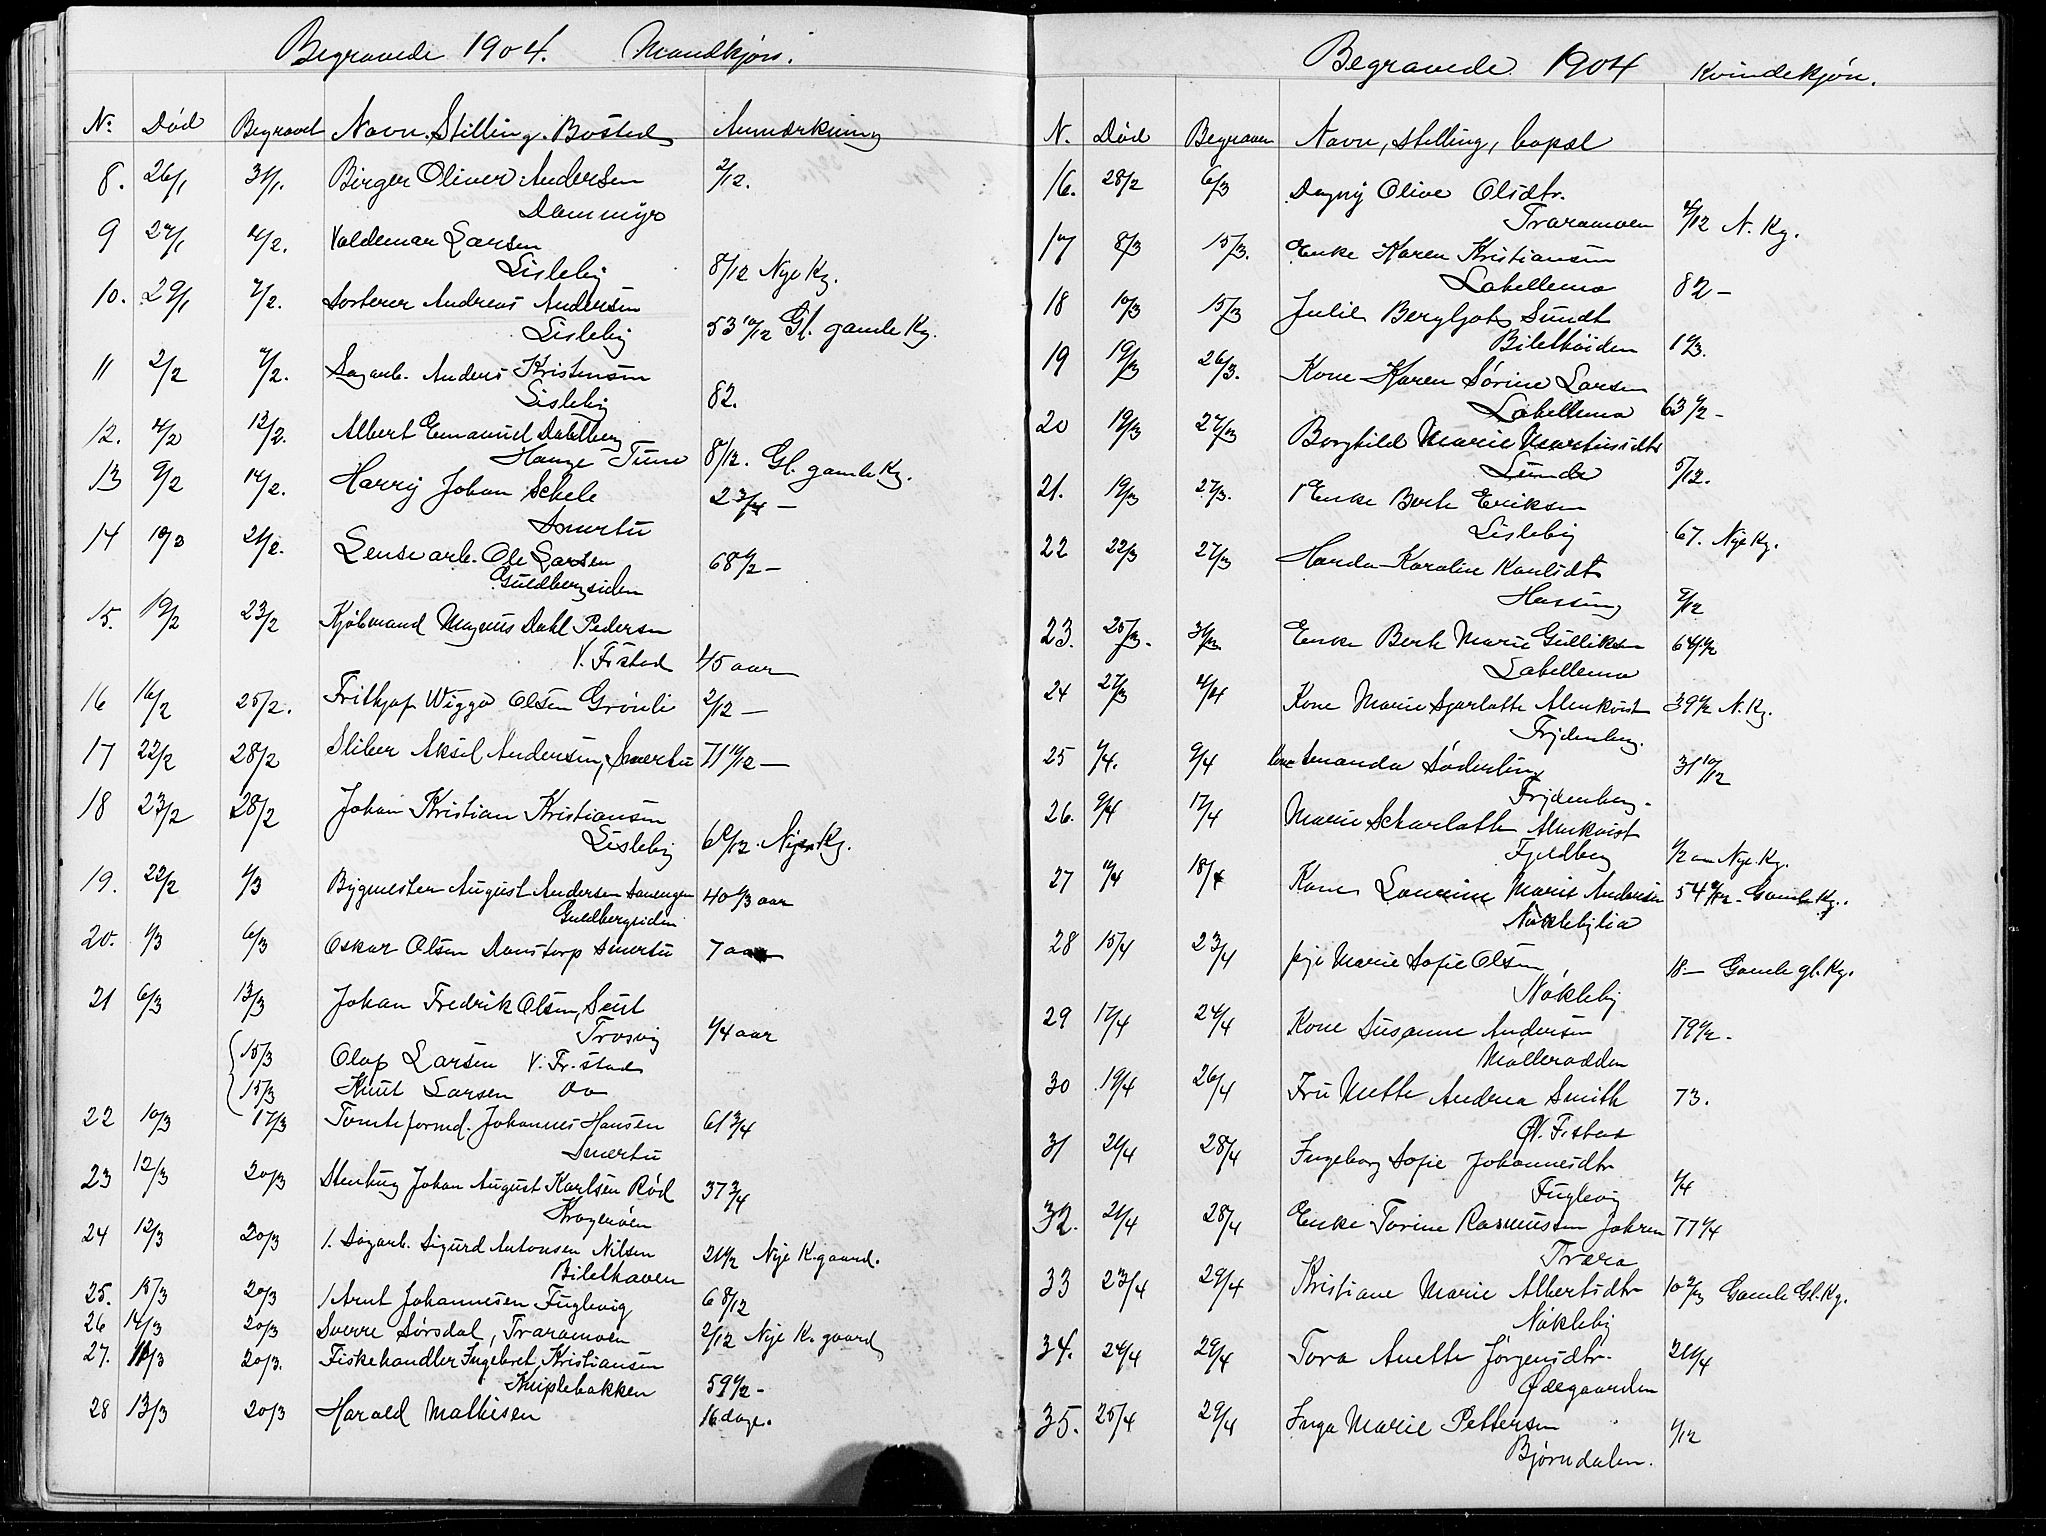 Begravede 1904. Mandkjøn.
N. Død Begravet Navn. Stilling. Bosted Anmærkning
8. 26/1 31/1. Birger Oliver Andersen 2/12.
Dammyr
9 27/1 4/2. Valdemar Larsen
Lisleby 8/12 Nye Kg.
10. 29/1 7/2. Sorterer Andreas Andersen
Lisleby 53 10/12 Gl. gamle Kg.
11 2/2 7/2. Sagarb. Anders Kristensen
Lisleby 82.
12. 4/2 12/2. Albert Emanuel Dahlberg
Hauge Tune 8/12. Gl. gamle Kg.
13 9/2 14/2. Harry Johan Schele 2 3/4 –
Smertu
14 21/2. Lensearb. Ole Larsen 68 1/2 –
Guldbergsiden
15. 19/2 23/2 Kjøbmand Magnus Dahl Pedersen
V. Frstad 45 aar
16 16/2 25/2. Frithjof Wiggo Olsen Grönli 2/12 –
17 22/2 28/2 Sliber Aksel Andersen, Smertu 71 11/12 –
18 23/2 28/2 Johan Kristian Kristiansen
Lisleby 6 9/12. Nye Kg.
19. 22/2 1/3 Bygmester August Andersen 40 1/3 aar
Guldbergsiden
20. 1/3 6/3 Oskar Olsen Damstorp Smertu 7 aar
21 6/3 13/3 Johan Fredrik Olsen,
Trosvig 1/4 aar
15/3 Olaf Larsen V. Fr.stad
15/3 Knut Larsen do
22 10/3 17/3 Tomteformd. Johannes Hansen 61 3/4
Smertu
23 12/3 20/3 Stenhug Johan August Karlsen Rød 37 3/4
Krogenöen
24 12/3 20/3 1. Sagarb. Sigurd Antonsen Nilsen 21 1/2 Nye K.gaard.
Bilethaven
25. 15/3 20/3 1 Arnt Johannesen Fuglevig 6 8/12
26 14/3 20/3 Sverre Sörsdal, Traramoen 2/12 Nye K. gaard
27. 20/3. Fiskehandler Ingebret Kristiansen
Kniplebakken 59 1/2 –
28 13/3 20/3 Harald Mathisen 16 dage.
Begravede 1904 Kvindekjøn.
N. Død Begraven Navn, Stilling, bopæl
16. 28/2 6/3 Dagny Olive Olsdtr.
Traramoen 4/12 N. Kg.
17 8/3 15/3. Enke Karen Kristiansen
Labellema 82 –
18 10/3 15/3 Julie Bergljot Sundt
Bilethöiden
19 19/3 26/3. Kone Karen Sörine Larsen
Labellema 63 1/2 –
20 19/3 27/3 Borghild Marie Martinsdtr
Lunde 5/12.
21. 19/3 27/3. 1 Enke Berte Eriksen
Lisleby 67. Nye Kg.
22 22/3 27/3 Harda Karoline Karlsdt
Hassing
23. 25/3. 31/3 Enke Berte Marie Gulliksen
Labellema
24 27/3 4/4 Kone Marie Sjarlotte Almkvist 39 1/2 N. Kg.
Frydenberg.
25 1/4. 9/4 Kone Amanda Söderling 31 10/12
Frydenberg.
26. 9/4 17/4 Marie Scharlotte Almkvist
Fjeldberg 1/2 Nye Kg.
27 11/4 18/4 Kone Laurine Marie Andersen Gamle Kg.
Nöklebylia
28 15/4 23/4 pige Marie Sofie Olsen 18 – Gamle gl. Kg.
Nökleby
29 17/4 24/4 Kone Susanne Andersen 79 1/2.
Mölleradden
30 19/4 26/4 Fru Mette Andrea Smith 73.
V. F.stad
31 21/4 28/4 Ingeborg Sofie Johannesdtr
Fuglevig 1/4
32. 21/4 28/4 Enke Torine Rasmussen 77 1/4
Trara
33 23/4 29/4 Kristiane Marie Albertsdtr 10 2/3 Gamle Gl. Kg.
Nökleby
34. 24/4 29/4 Tora Anette Jörgensdtr. 21 1/4
Ødegaarden
35. 25/4 29/4 Inga Marie Pettersen
Bjørndalen. 1/12